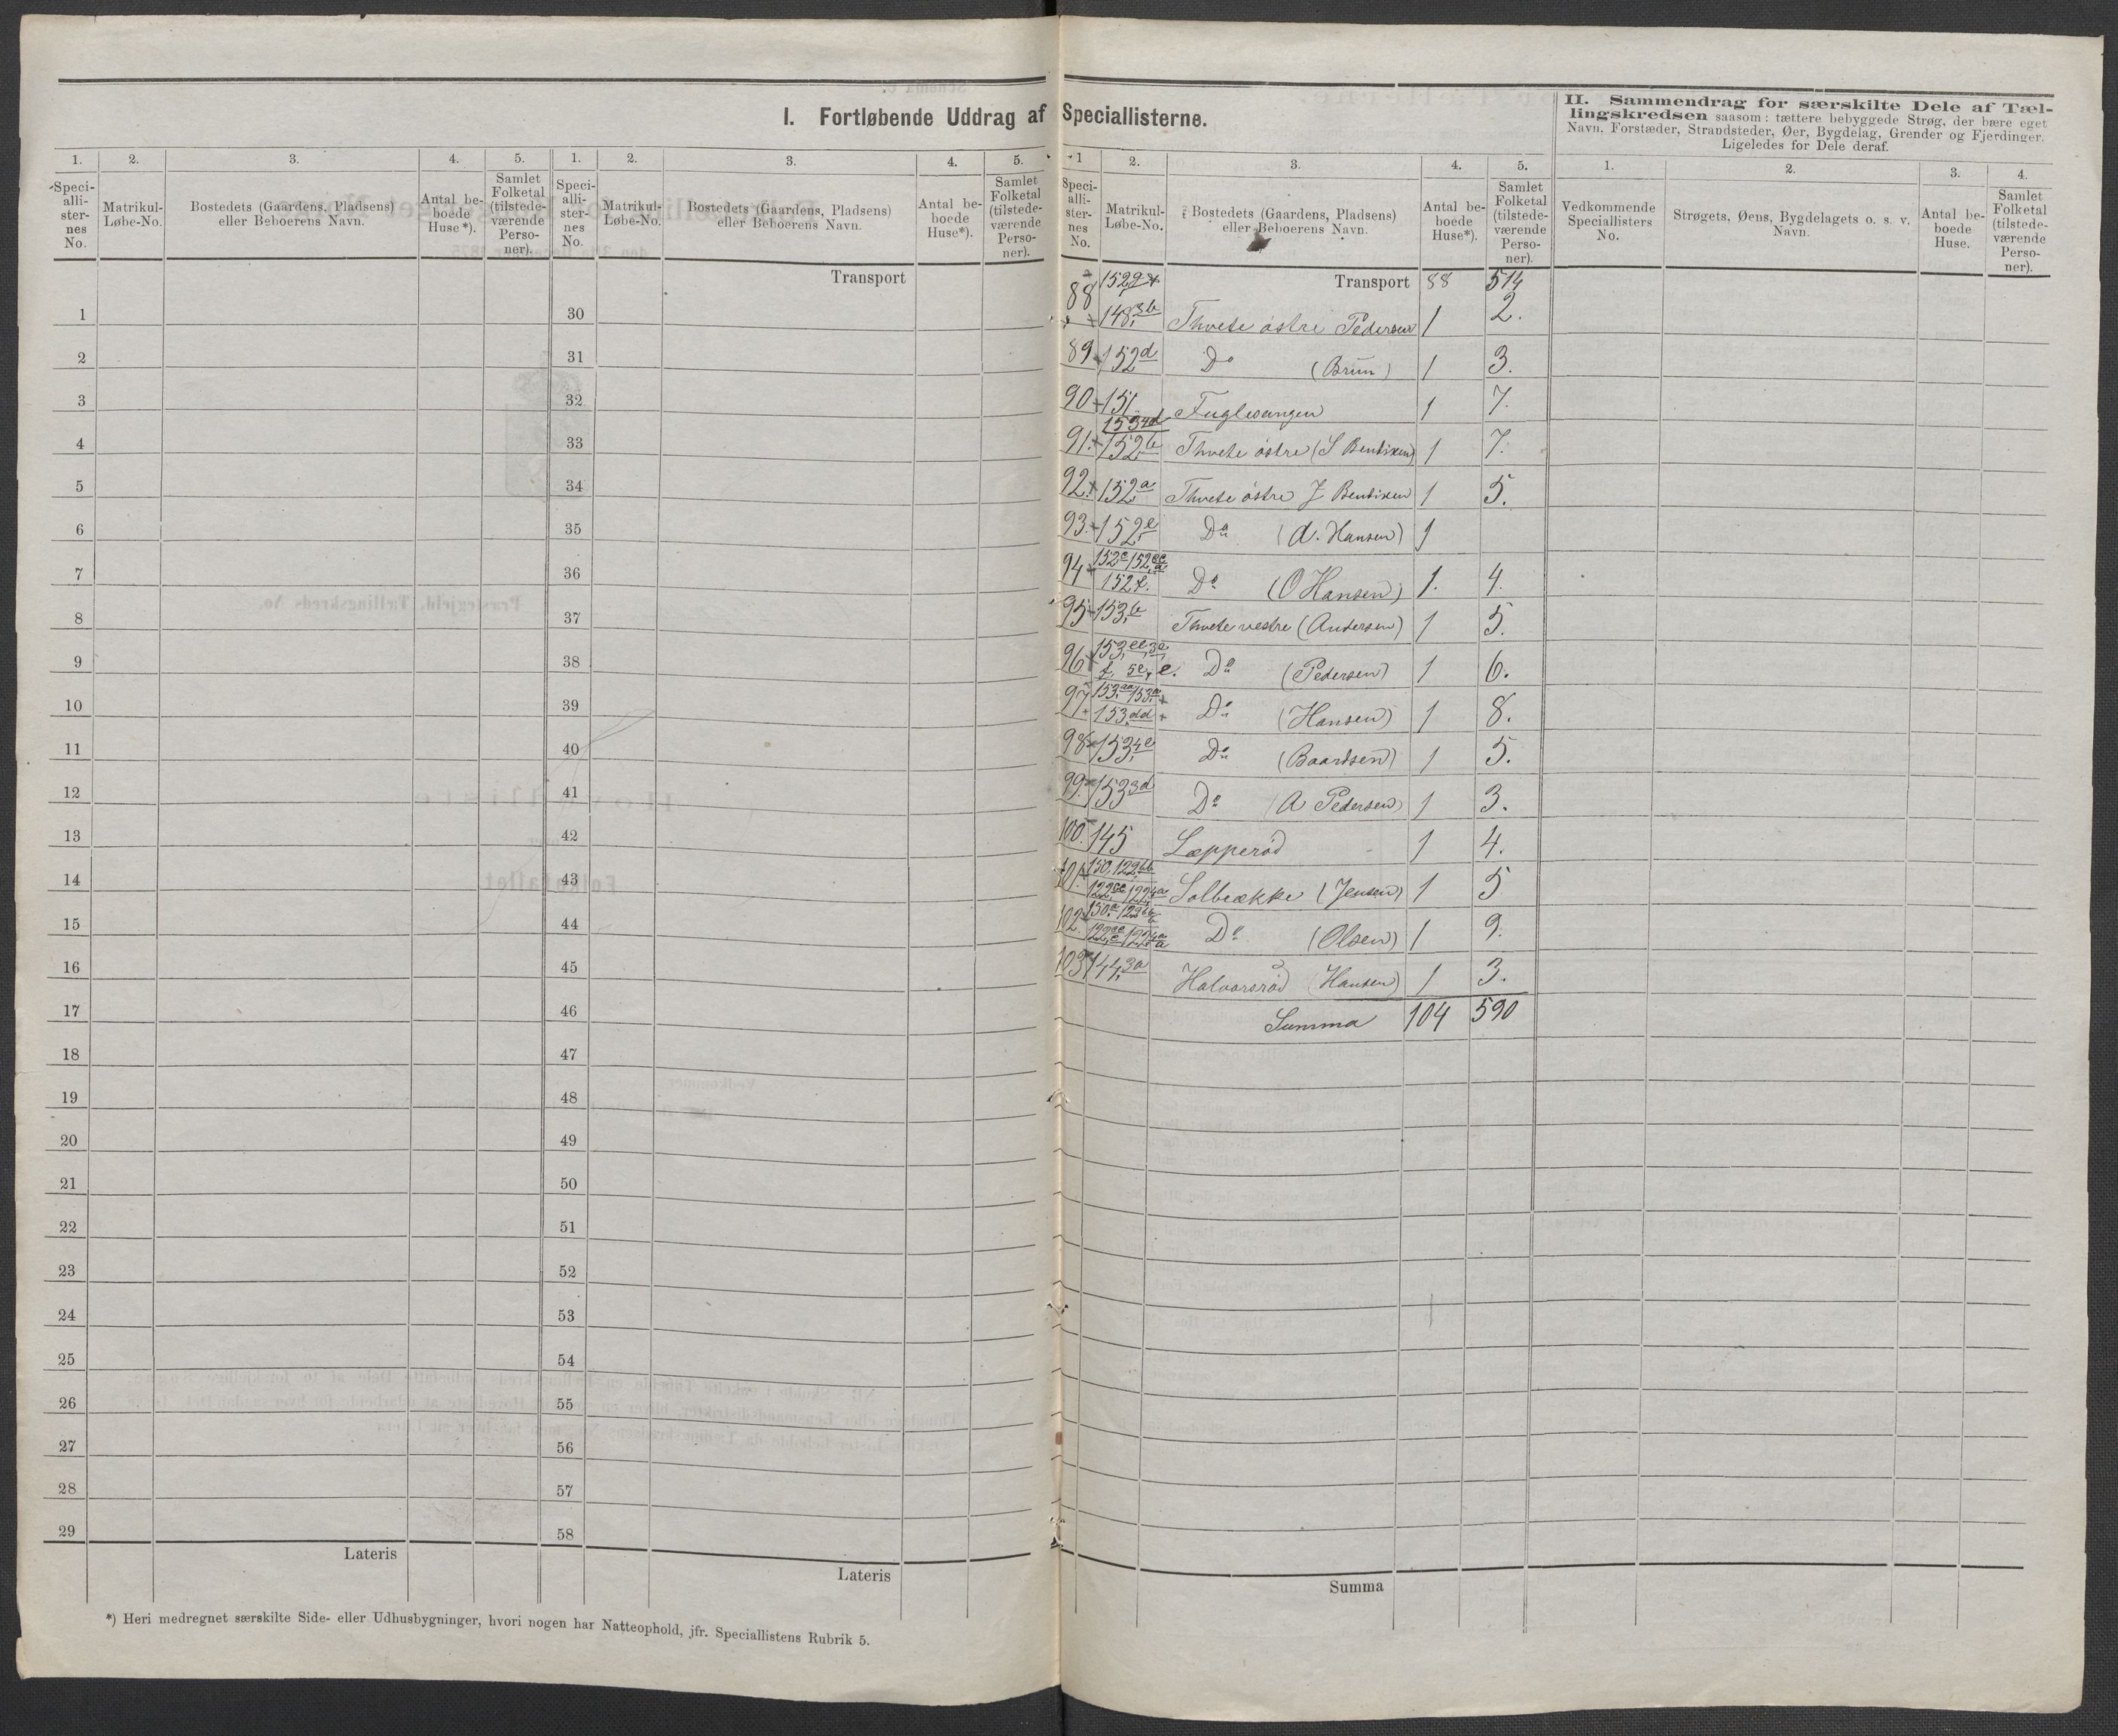 I. Fortløbende Uddrag af Speciallisterne.
II. Sammendrag for særskilte Dele af Tæl-
lingskredsen saasom: tættere bebyggede Strøg, der bære eget
Navn, Forstæder, Strandsteder, Øer, Bygdelag, Grender og Fjerdinger.
Ligeledes for Dele deraf.
1. 2. 3. 4. 5. 1. 2. 3. 4. 5. 1 2. 3. 4. 5. 1. 2. 3. 4.
Speci-
alli-
ster-
nes
No.
Matrikul-
Løbe-No.
Bostedets (Gaardens, Pladsens)
eller Beboerens Navn.
Antal be-
boede
Huse*).
Samlet
Folketal
(tilstede-
værende
Perso-
ner).
Speci-
alli-
ster-
nes
No.
Matrikul-
Løbe-No.
Bostedets (Gaardens, Pladsens)
eller Beboerens Navn.
Antal be-
boede
Huse*).
Samlet
Folketal
(tilstede-
værende
Perso-
ner).
Speci-
alli-
ster-
nes
No.
Matrikul-
Løbe-No.
Bostedets (Gaardens, Pladsens)
eller Beboerens Navn.
Antal be-
boede
Huse*).
Samlet
Folketal
(tilstede-
værende
Perso-
ner).
Vedkommende
Speciallisters
No.
Strøgets, Øens, Bygdelagets o. s. v.
Navn.
Antal be-
boede
Huse.
Samlet
Folketal
(tilstede-
værende
Perso-
ner).
Transport
1 30
2 31
3 32
4 33
5 34
6 35
7 36
8 37
9 38
10 39
11 40
12 41
13 42
14 43
15 44
16 45
17 46
18 47
19 48
20 49
21 50
22 51
23 52
24 53
25 54
26 55
27 56
28 57
29 58
Lateris
Lateris
*) Heri medregnet særskilte Side- eller Udhusbygninger, hvori nogen har Natteophold, jfr. Speciallistens Rubrik 5.
Transport 88 514
88 148 3b Thvete østre Pedersen 1 2.
89 152 d Do (Brun) 1 3.
90 151 Fuglesangen 1 7.
153 4d
91. 152 b Thvete østre (S Bentixen) 1 7.
92. 152 a Thvete østre J Bentixen 1 5.
93. 152 e Do (A. Hansen) 1
94 152 f. Do (O Hansen) 1. 4.
95 153 b Thvete vestre (Andersen) 1 5.
96 Do (Pedersen) 1 6.
97 153 dd Do (Hansen) 1 8.
98 153 4e Do (Baardsen) 1 5.
99 153 3d Do (A Pedersen) 1 3.
100. 145 Lepperød 1 4.
101. Solbrække (Jensen) 1 5
102. Do (Olsen) 1 9.
103 144, 3a Halvorsrød (Hansen) 1 3.
Summa 104 590
Summa